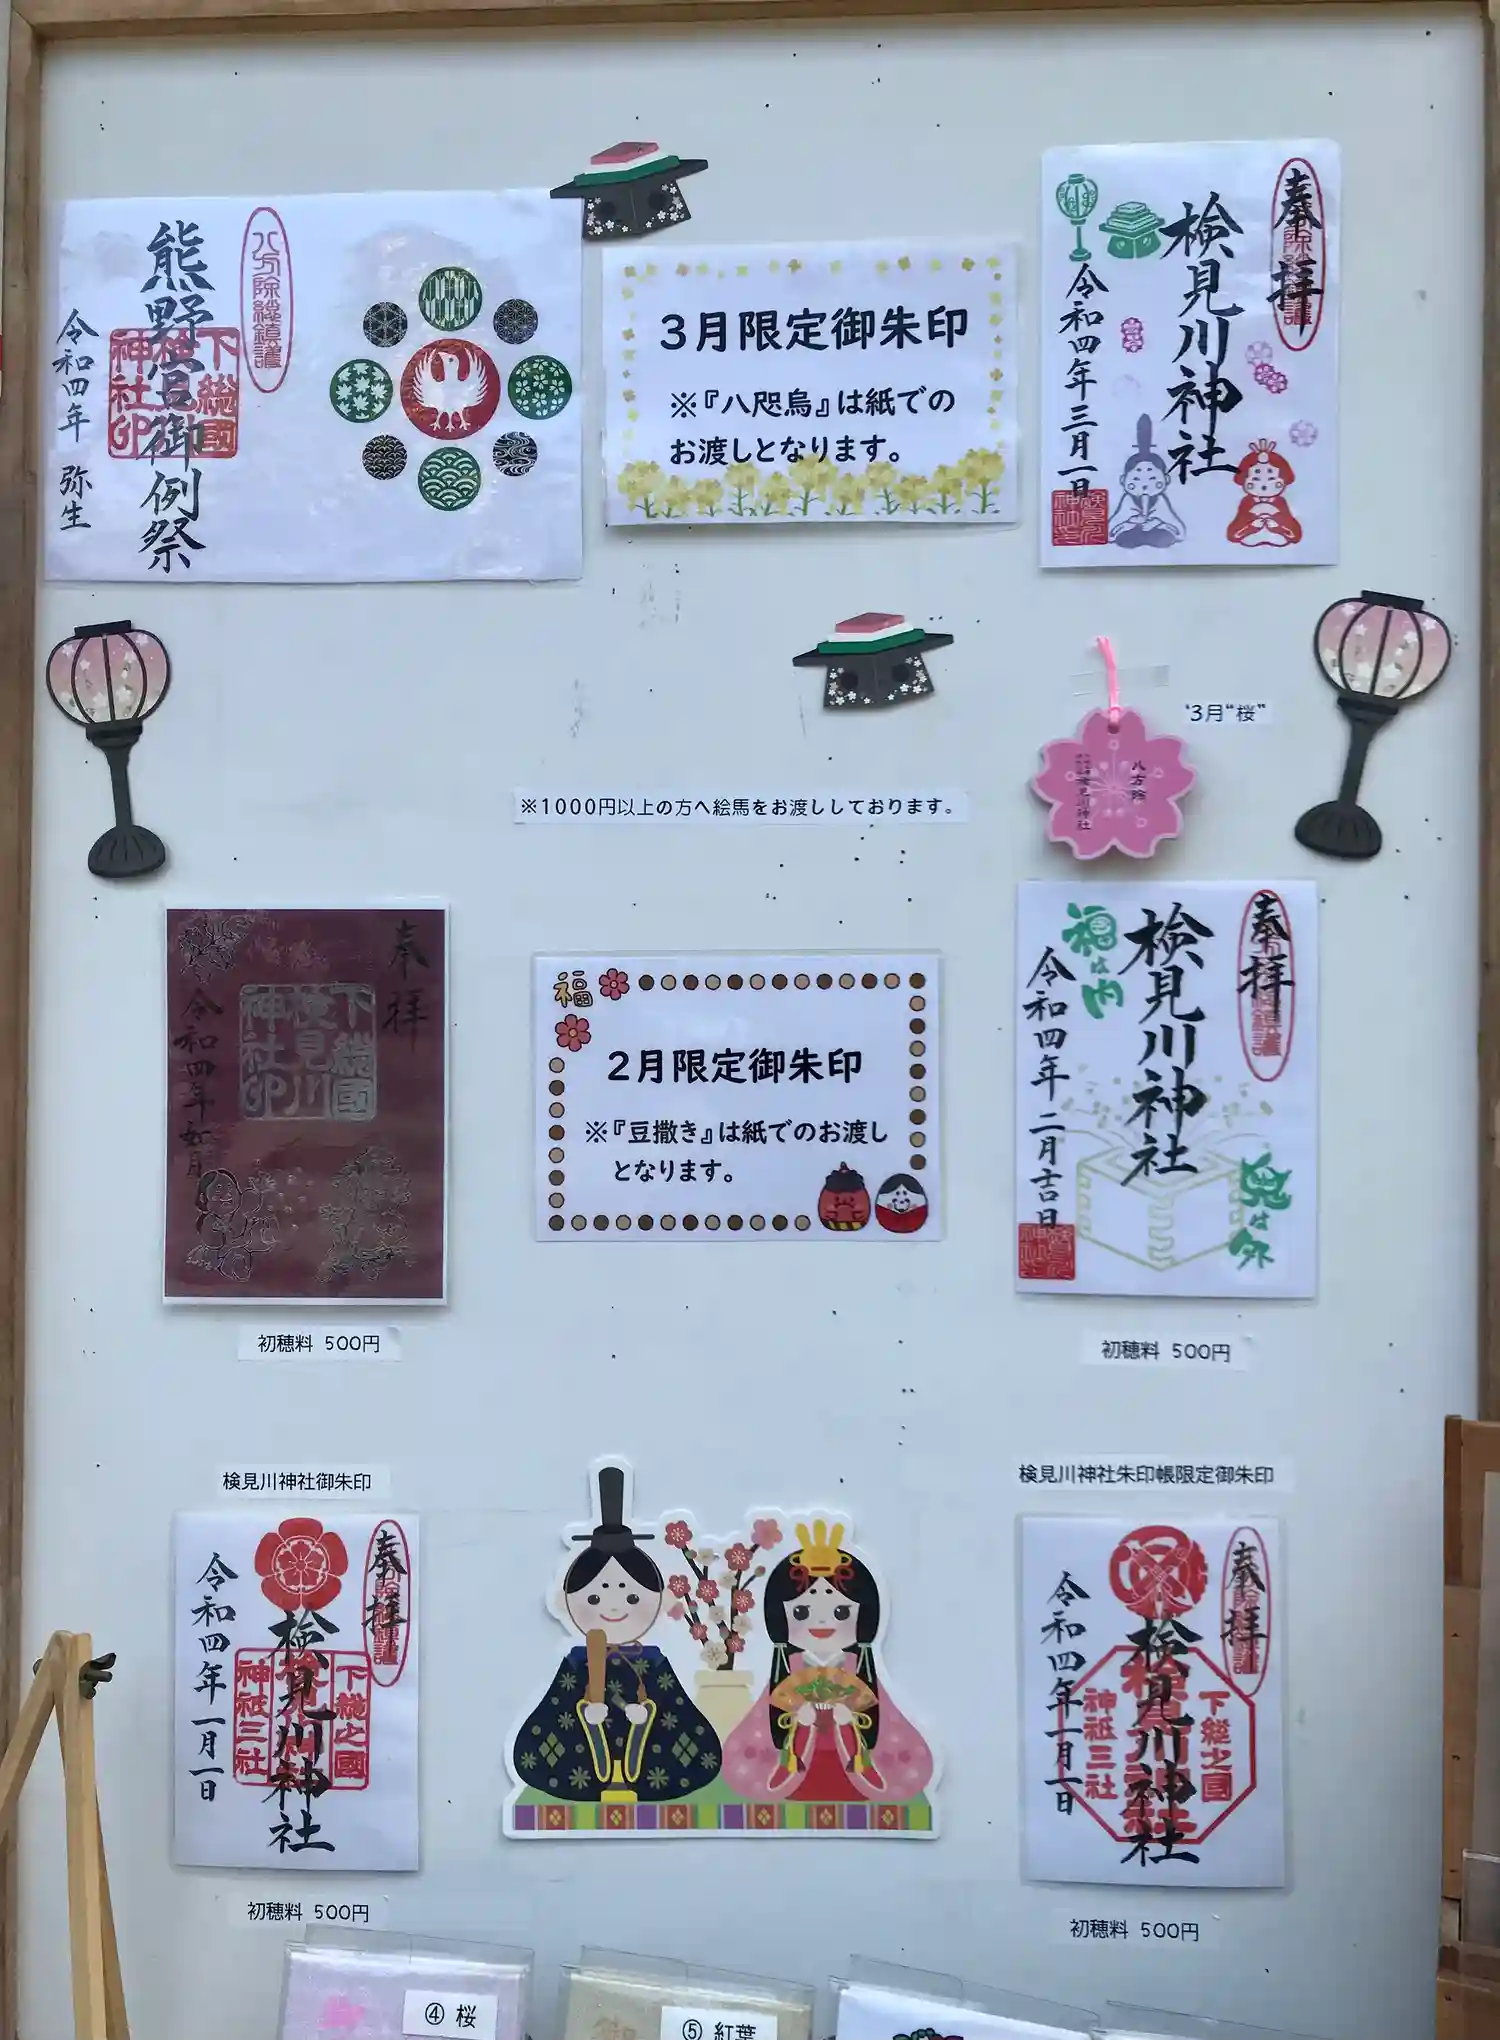 熊野宮御例祭
八方除総鎮護
下総國
検見川
神社印
令和四年 弥生
3月限定御朱印
※『八咫烏』は紙での
お渡しとなります。
奉拝
検見川神社
令和四年三月一日
"3月"桜"
八方除
検見川神社
※1000円以上の方へ絵馬をお渡ししております。
奉拝
下総國
検見川
神社印
令和四年如月
初穂料 500円
福
2月限定御朱印
※『豆撒き』は紙でのお渡し
となります。
奉拝
検見川神社
福は内
鬼は外
令和四年二月吉日
初穂料 500円
検見川神社御朱印
奉拝
検見川神社
下総之國
神祇三社
令和四年一月一日
初穂料 500円
検見川神社朱印帳限定御朱印
奉拝
検見川神社
下総之國
神祇三社
令和四年一月一日
初穂料 500円
④ 桜
⑤ 紅葉